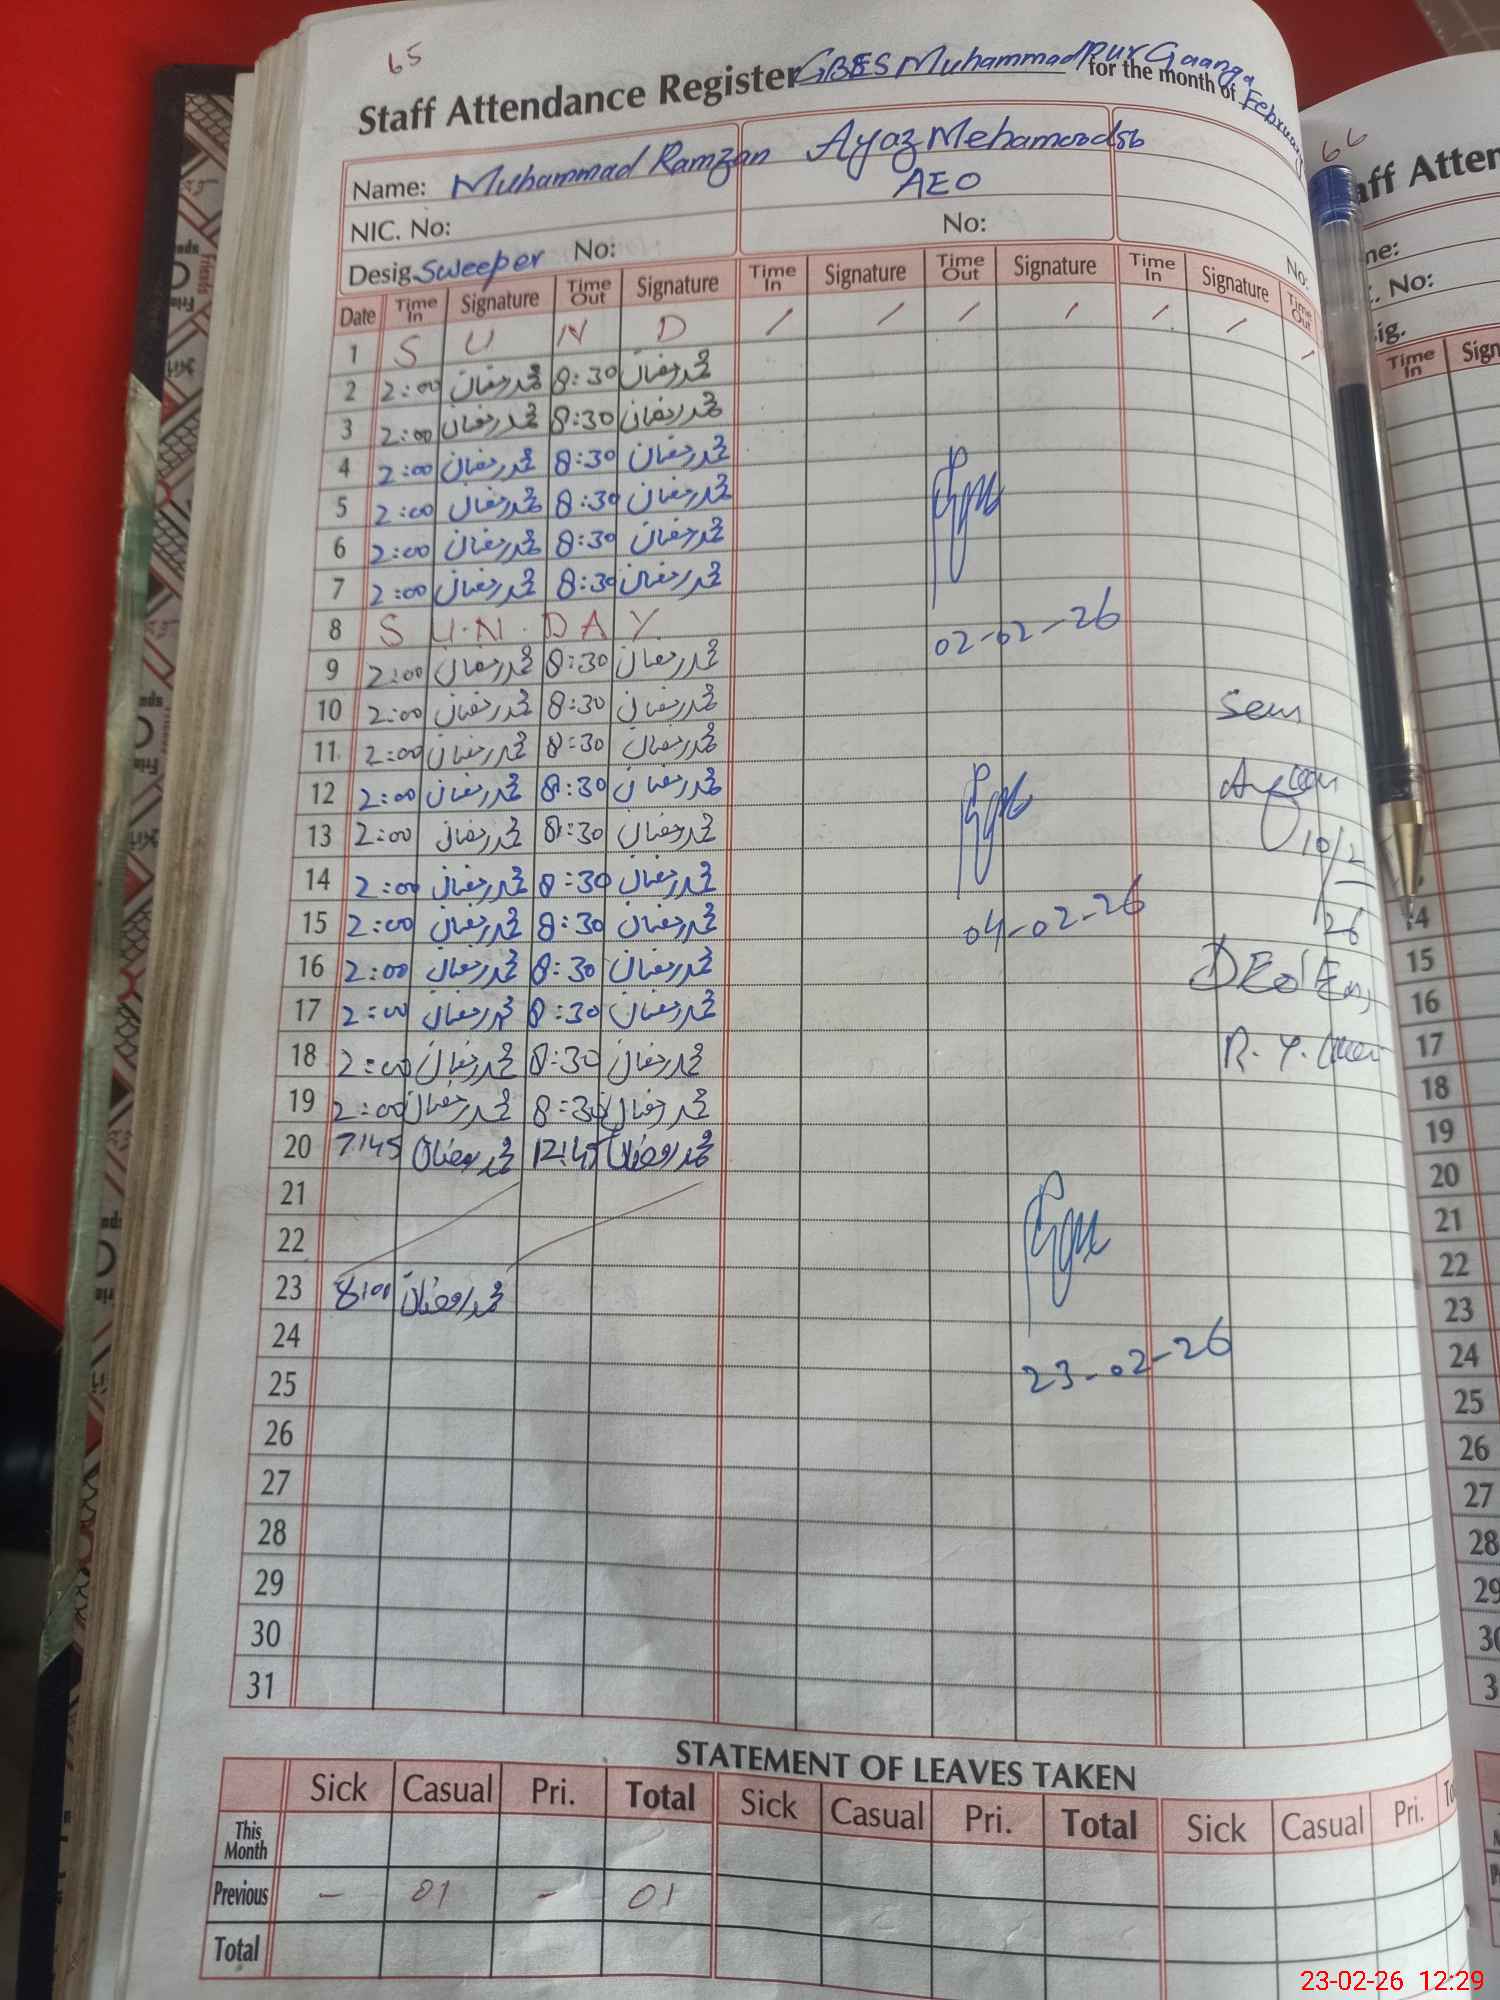 65
Staff Attendance Register GBES Muhammad Pur Gaanga for the month of February
Name: Muhammad Ramzan Ayaz Mehamood sb
AEO
NIC. No:
Desig. Sweeper No: No: No:
Date Time In Signature Time Out Signature Time In Signature Time Out Signature Time In Signature Time Out
1 S U N D / / / / / / /
2 2:00 محمد رمضان 8:30 محمد رمضان
3 2:00 محمد رمضان 8:30 محمد رمضان
4 2:00 محمد رمضان 8:30 محمد رمضان
5 2:00 محمد رمضان 8:30 محمد رمضان
6 2:00 محمد رمضان 8:30 محمد رمضان
7 2:00 محمد رمضان 8:30 محمد رمضان
8 S U.N. D A Y.
02-02-26
9 2:00 محمد رمضان 8:30 محمد رمضان
10 2:00 محمد رمضان 8:30 محمد رمضان
Seen
11 2:00 محمد رمضان 8:30 محمد رمضان
12 2:00 محمد رمضان 8:30 محمد رمضان
13 2:00 محمد رمضان 8:30 محمد رمضان
10/2
14 2:00 محمد رمضان 8:30 محمد رمضان
26
15 2:00 محمد رمضان 8:30 محمد رمضان
04-02-26
16 2:00 محمد رمضان 8:30 محمد رمضان
DEO
17 2:00 محمد رمضان 8:30 محمد رمضان
R. Y.
18 2:00 محمد رمضان 8:30 محمد رمضان
19 2:00 محمد رمضان 8:30 محمد رمضان
20 7:45 محمد رمضان 12:45 محمد رمضان
21
22
23 8:00 محمد رمضان
24
23-02-26
25
26
27
28
29
30
31
STATEMENT OF LEAVES TAKEN
Sick Casual Pri. Total Sick Casual Pri. Total Sick Casual Pri.
This Month
Previous - 01 - 01
Total
66
No:
Time In
14
15
16
17
18
19
20
21
22
23
24
25
26
27
28
29
30
23-02-26 12:29